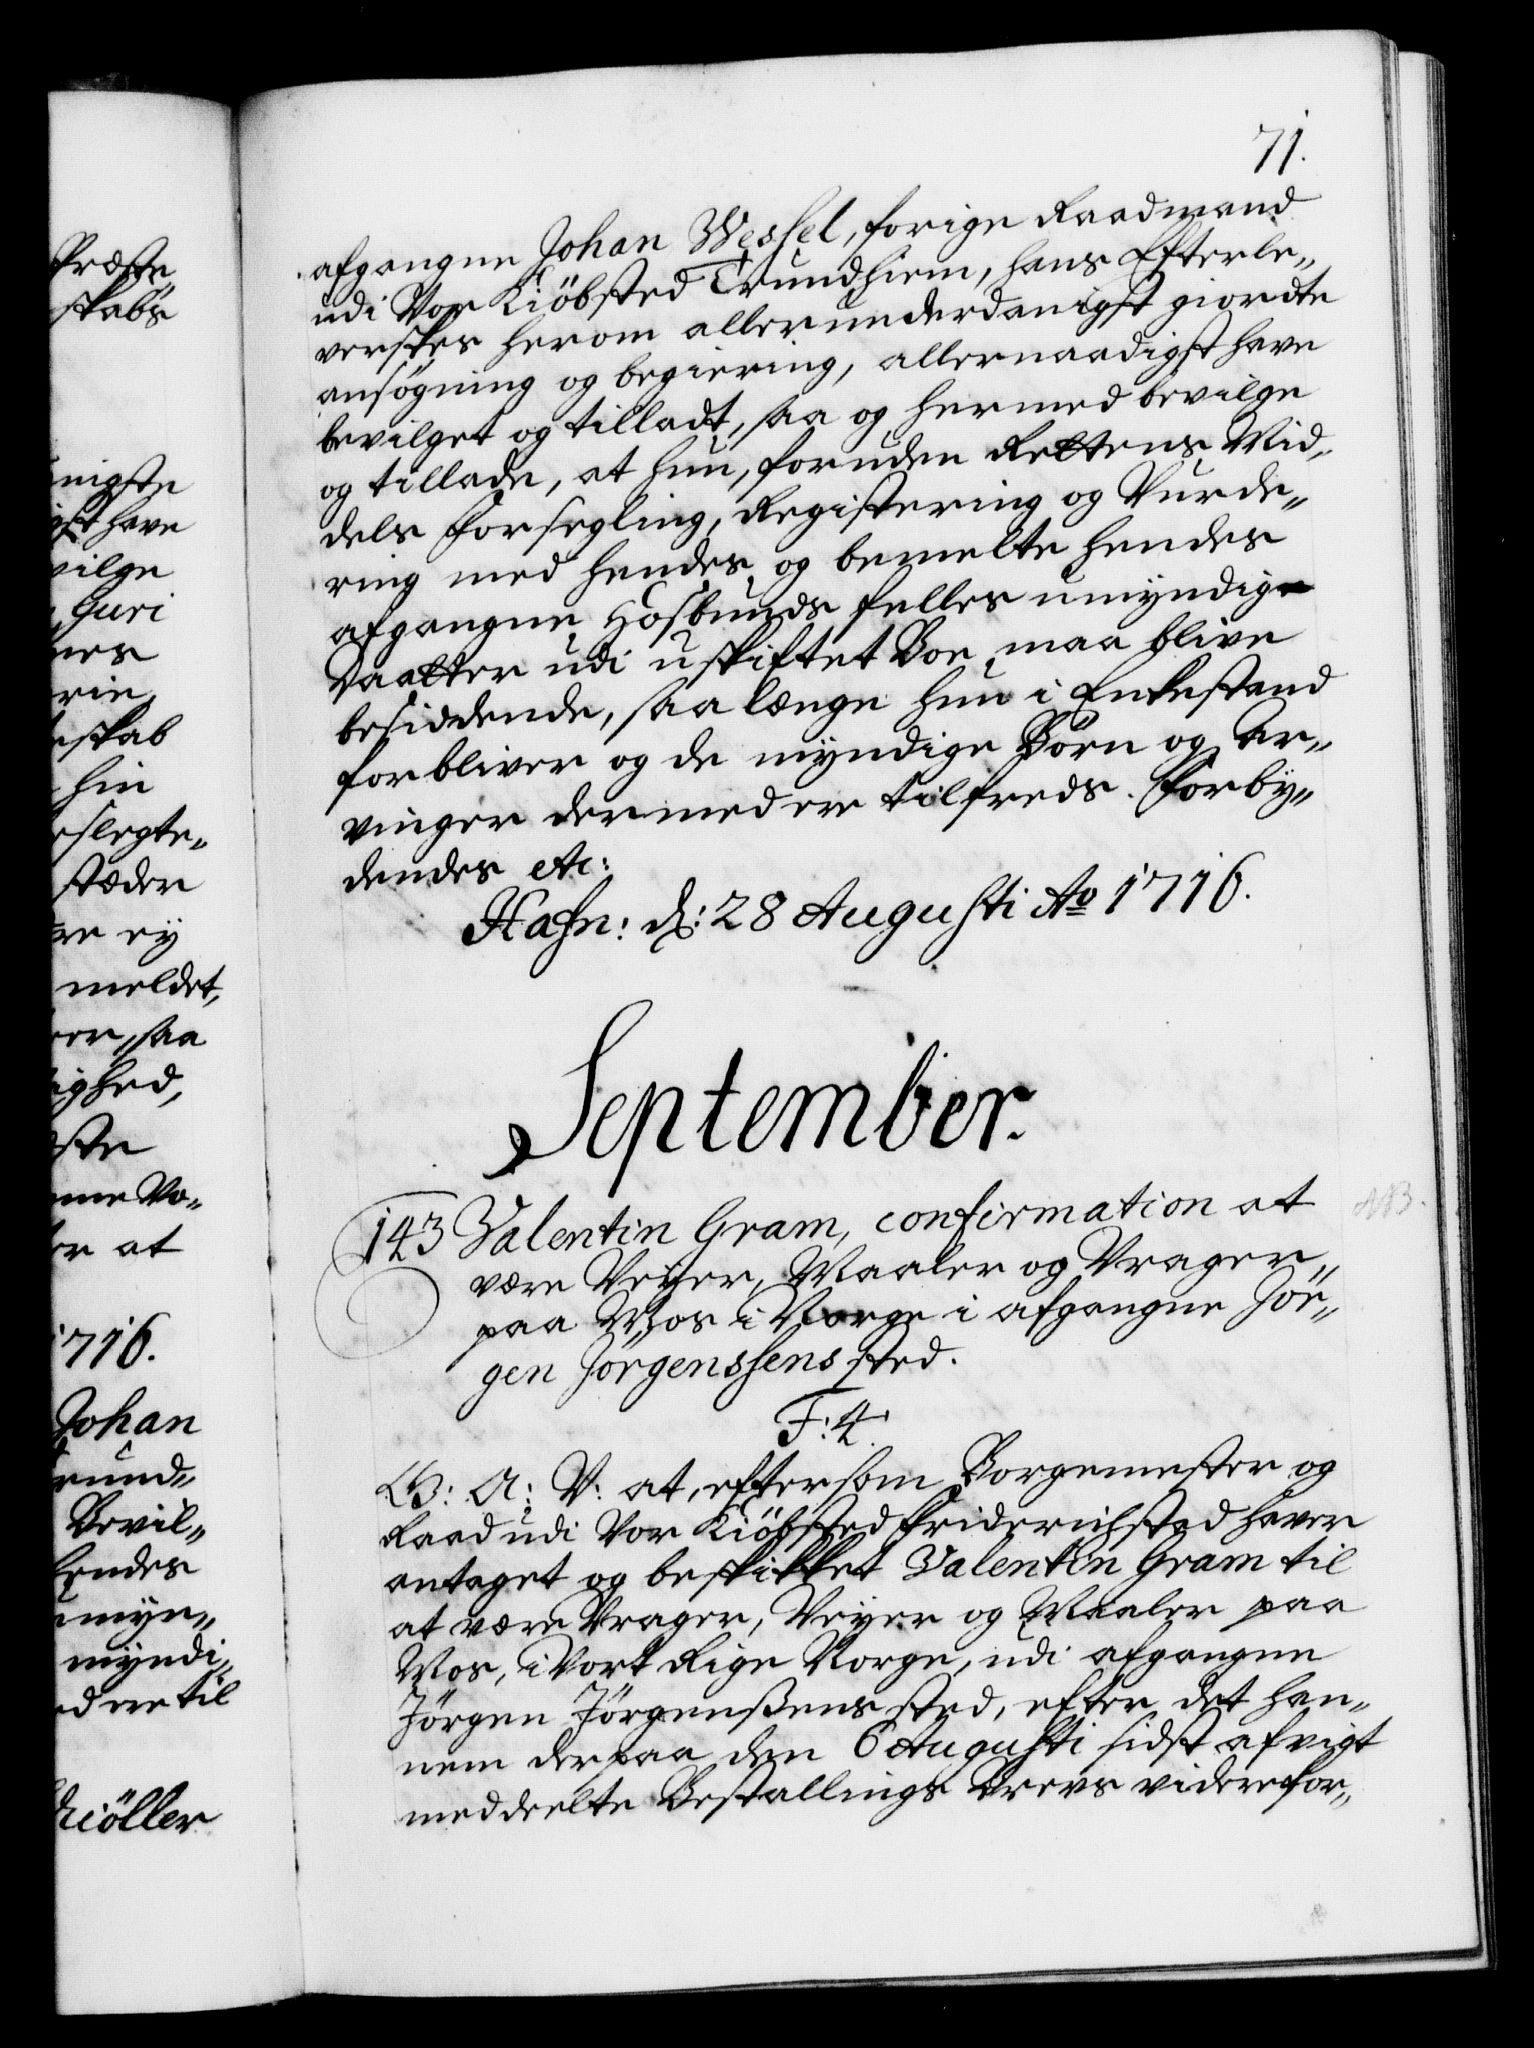 71.
afgangne Johan Wessel, forige Raadmand
udi Vor Kiöbsted Trundhiem, hans Efterle„
verskes herom allerunderdanigst giordte
ansögning og begiering, allernaadigst have
bevilget og tilladt, saa og hermed bevilge
og tillade, at hun, foruden Rettens Mid„
dels Forsegling, Registering og Vurde„
ring med hendes og bemelte hendes
afgangne Hosbunds felles umyndige
Daatter udi uskiftet Boe maa blive
besiddende, saa længe hun i Enkestand
forbliver og de myndige Börn og Ar„
vinger dermed ere tilfreds. Forby„
dendes etc:
Hafn: d: 28 Augusti Ao 1716.
September.
143 Valentin Gram, confirmation at
være Veyer, Maaler og Vrager,
paa Mos i Norge i afgangne Jör„
gen Jörgenssens sted.
F: 4.
G: A: V: at, eftersom Borgemester og
Raad udi Vor Kiöbsted Friderichstad haver
antaget og beskikket Valentin Gram til
at være Vrager, Veyer og Maaler paa
Mos, i Vort Rige Norge, udi afgangne
Jörgen Jörgenßens sted, efter det han„
nem derpaa den 6 Augusti sidst afvigt
meddeelte Bestallings Brevs viderefor„
Præste„
skabs
nigste
gst have
vilge
Guri
nes
rie,
eskab
hin
eslegte„
stæder
re ey
meldet,
er, saa
ighed,
ste
me Vo„
er at
1716.
Johan
rund„
Bevil„
hendes
umyn„
myndi„
ed ere til
Kiöller
NB.